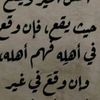 حيث يقع، فإن وقع
في أهله فهم أهله،
وإن وقع في غير